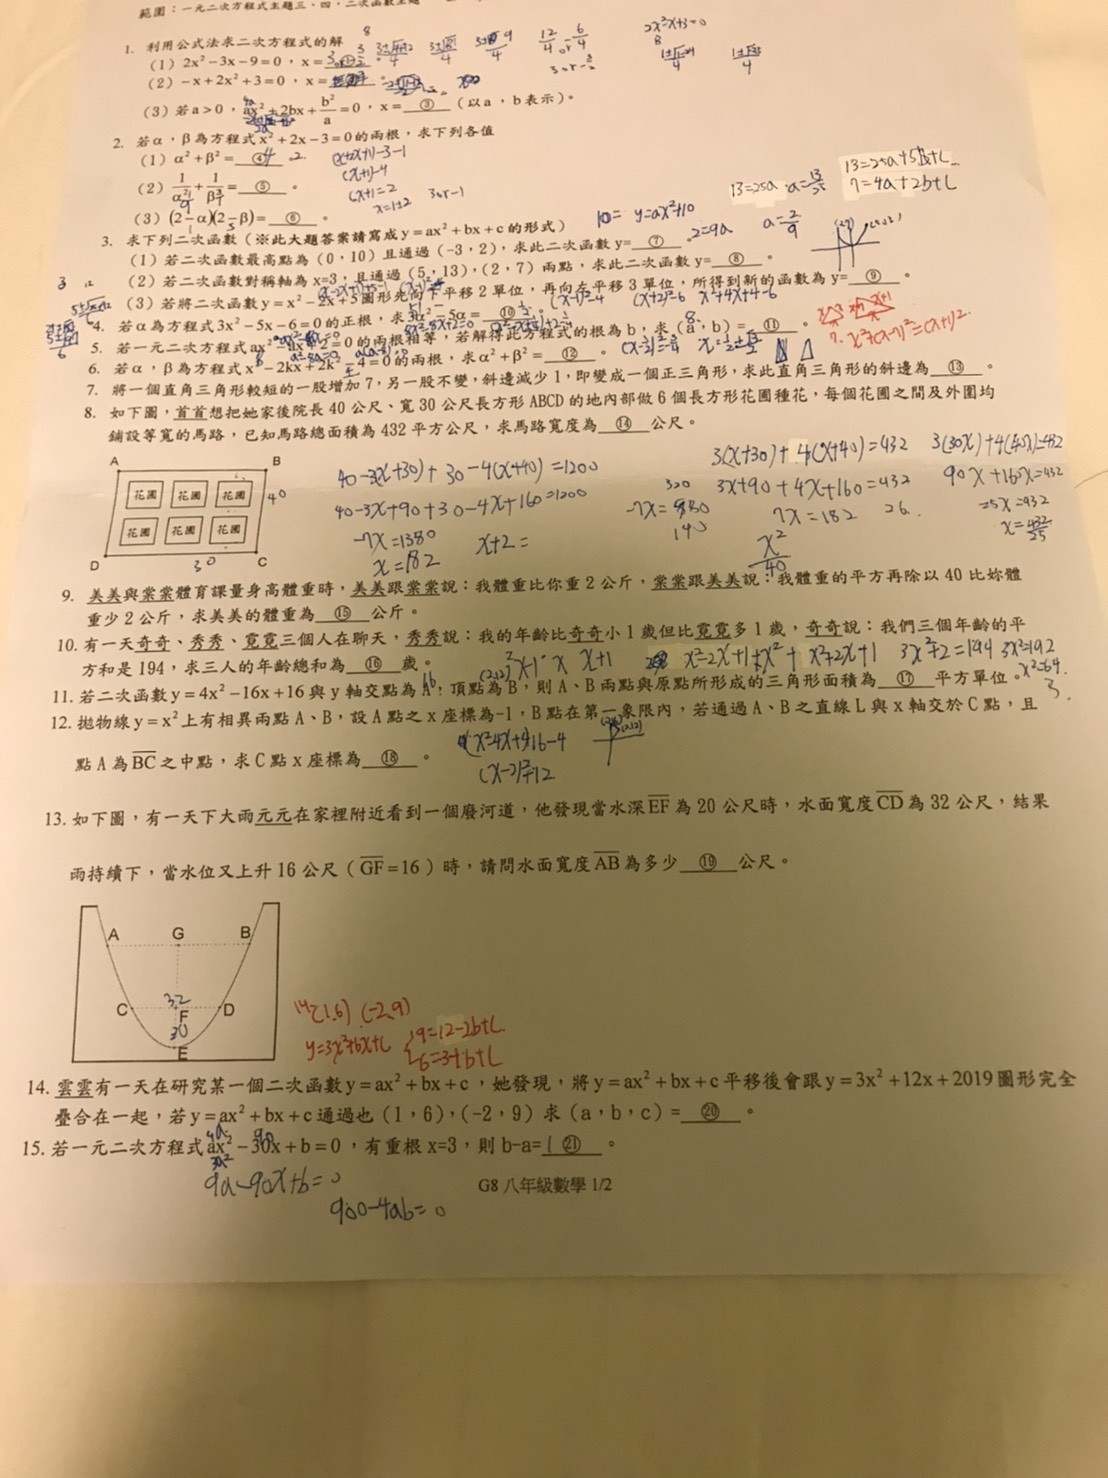 範圍：一元二次方程式主題三、四，二次函數主題
1. 利用公式法求二次方程式的解
（1）2x²－3x－9＝0，x＝ ①
（2）－x＋2x²＋3＝0，x＝
（3）若a＞0，ax²＋2bx＋b²/a＝0，x＝ ③ （以a，b表示）。
2. 若α，β為方程式x²＋2x－3＝0的兩根，求下列各值
（1）α²＋β²＝ ④ 。
（2）1/α＋1/β＝ ⑤ 。
（3）(2－α)(2－β)＝ ⑥ 。
3. 求下列二次函數（※此大題答案請寫成y＝ax²＋bx＋c的形式）
（1）若二次函數最高點為（0，10）且通過（－3，2），求此二次函數y＝ ⑦ 。
（2）若二次函數對稱軸為x=3，且通過（5，13），（2，7）兩點，求此二次函數y＝ ⑧ 。
（3）若將二次函數y＝x²－2x＋5圖形先向下平移2單位，再向左平移3單位，所得到新的函數為y＝ ⑨ 。
4. 若α為方程式3x²－5x－6＝0的正根，求3α²－5α＝ ⑩ 。
5. 若一元二次方程式ax²－ax＋2＝0的兩根相等，若解得此方程式的根為b，求（a，b）＝ ⑪ 。
6. 若α，β為方程式x²－2kx＋2k²－4＝0的兩根，求α²＋β²＝ ⑫ 。
7. 將一個直角三角形較短的一股增加7，另一股不變，斜邊減少1，即變成一個正三角形，求此直角三角形的斜邊為 ⑬ 。
8. 如下圖，首首想把她家後院長40公尺、寬30公尺長方形ABCD的地內部做6個長方形花圃種花，每個花圃之間及外圍均
鋪設等寬的馬路，已知馬路總面積為432平方公尺，求馬路寬度為 ⑭ 公尺。
40-3(x+30)+30-4(x+40)=1200
3(x+30)+4(x+40)=432
3(30x)+4(40x)=432
40-3x+90+30-4x+160=1200
3x+90+4x+160=432
90x+160x=432
-7x=1380
x=182
x+2=
7x=182
26
25x=432
x=432/25
x²/40
A B
花圃 花圃 花圃
40
花圃 花圃 花圃
D 30 C
9. 美美與棠棠體育課量身高體重時，美美跟棠棠說：我體重比你重2公斤，棠棠跟美美說：我體重的平方再除以40比妳體
重少2公斤，求美美的體重為 ⑮ 公斤。
10. 有一天奇奇、秀秀、霓霓三個人在聊天，秀秀說：我的年齡比奇奇小1歲但比霓霓多1歲，奇奇說：我們三個年齡的平
方和是194，求三人的年齡總和為 ⑯ 歲。
x-1 x x+1 x²-2x+1+x²+x²+2x+1 3x²+2=194 3x²=192
x²=64
11. 若二次函數y＝4x²－16x＋16與y軸交點為A，頂點為B，則A、B兩點與原點所形成的三角形面積為 ⑰ 平方單位。
12. 拋物線y＝x²上有相異兩點A、B，設A點之x座標為-1，B點在第一象限內，若通過A、B之直線L與x軸交於C點，且
點A為BC之中點，求C點x座標為 ⑱ 。
13. 如下圖，有一天下大雨元元在家裡附近看到一個廢河道，他發現當水深EF為20公尺時，水面寬度CD為32公尺，結果
雨持續下，當水位又上升16公尺（GF＝16）時，請問水面寬度AB為多少 ⑲ 公尺。
A G B
32
C F D
30
E
14 (1,6) (-2,9)
y=3x²+bx+c
9=12-2b+c
6=3+b+c
14. 雲雲有一天在研究某一個二次函數y＝ax²＋bx＋c，她發現，將y＝ax²＋bx＋c平移後會跟y＝3x²＋12x＋2019圖形完全
疊合在一起，若y＝ax²＋bx＋c通過也（1，6），（－2，9）求（a，b，c）＝ ⑳ 。
15. 若一元二次方程式ax²－30x＋b＝0，有重根x=3，則b－a＝ ㉑ 。
9a-90x+b=0
900-4ab=0
G8 八年級數學 1/2